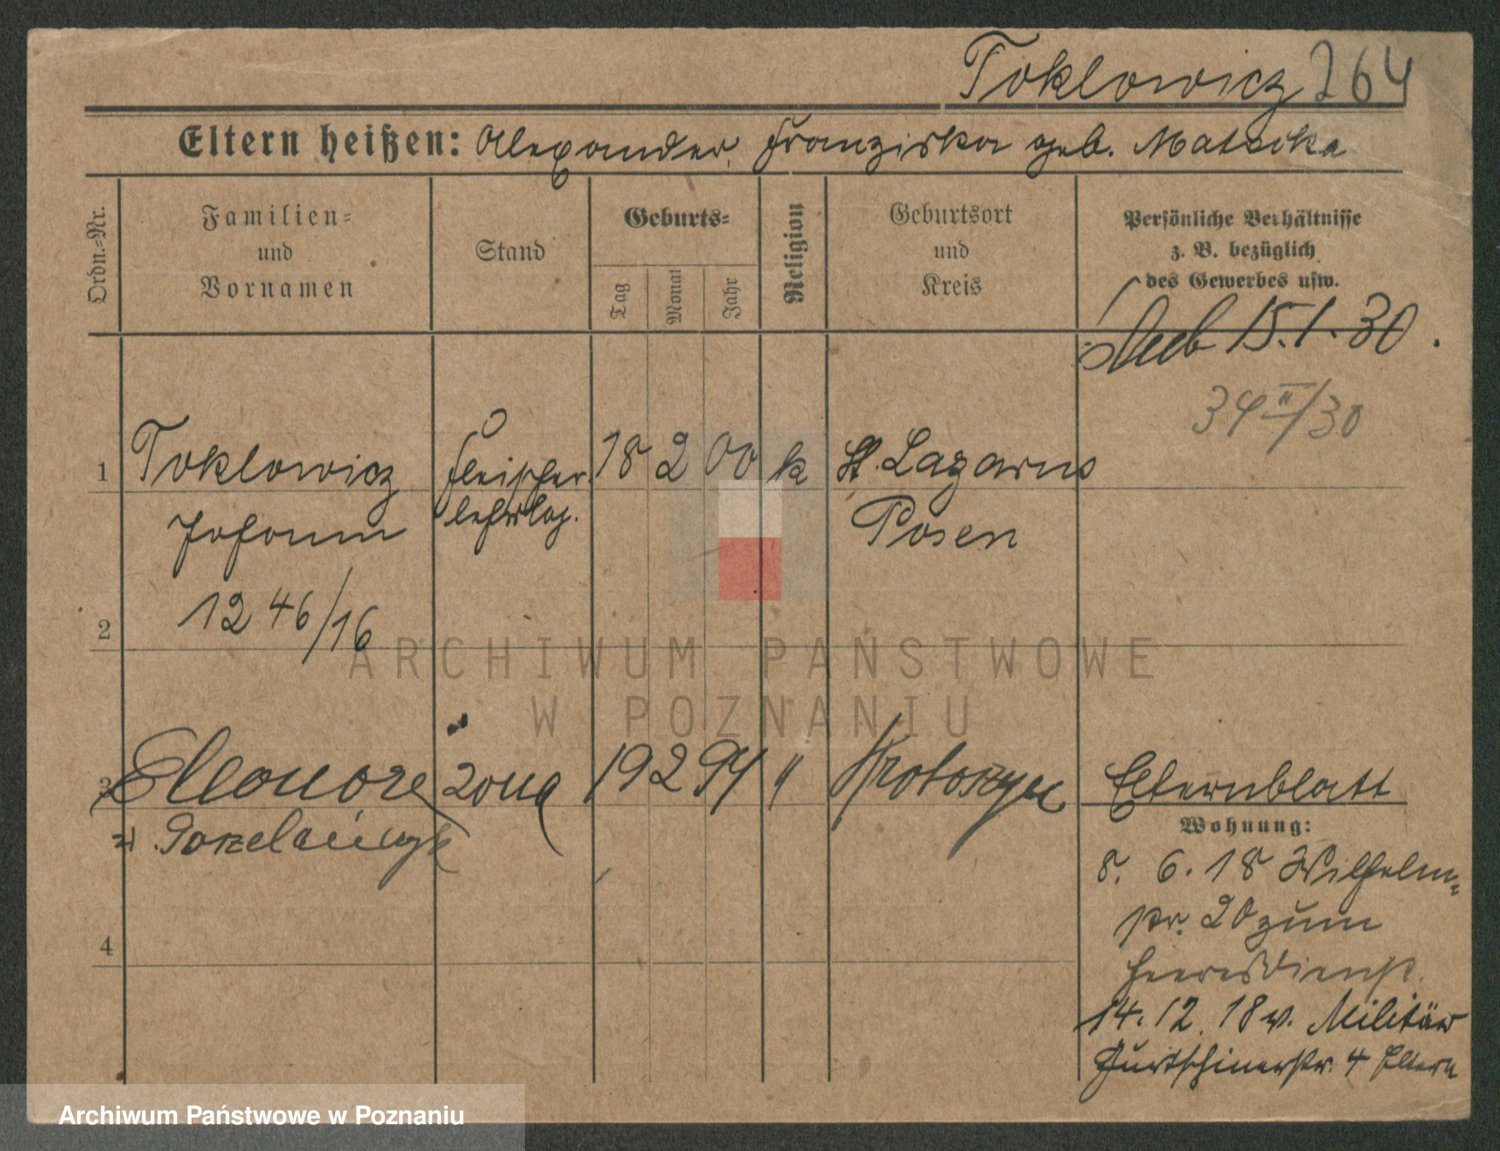 Toklowicz 264
Eltern heißen: Alexander, Franziska geb. Matecka
Ordn.-Nr.
Familien-
und
Vornamen
Stand
Geburts-
Tag
Monat
Jahr
Religion
Geburtsort
und
Kreis
Persönliche Verhältnisse
z. B. bezüglich
des Gewerbes usw.
15.1.30.
34 II/30
1 Toklowicz Fleischer 18 2 00 k St. Lazarus
lehrlg.
Johann Posen
2 1246/16
3 Eleonora żona 19 2 94 " Krotoszyn Elternblatt
Wohnung:
8. 6. 18 Wilhelm-
str. 20 zum
Heeresdienst.
4
14. 12. 18 v. Militär
Gurtschinerstr. 4 Eltern
ARCHIWUM PAŃSTWOWE
W POZNANIU
Archiwum Państwowe w Poznaniu